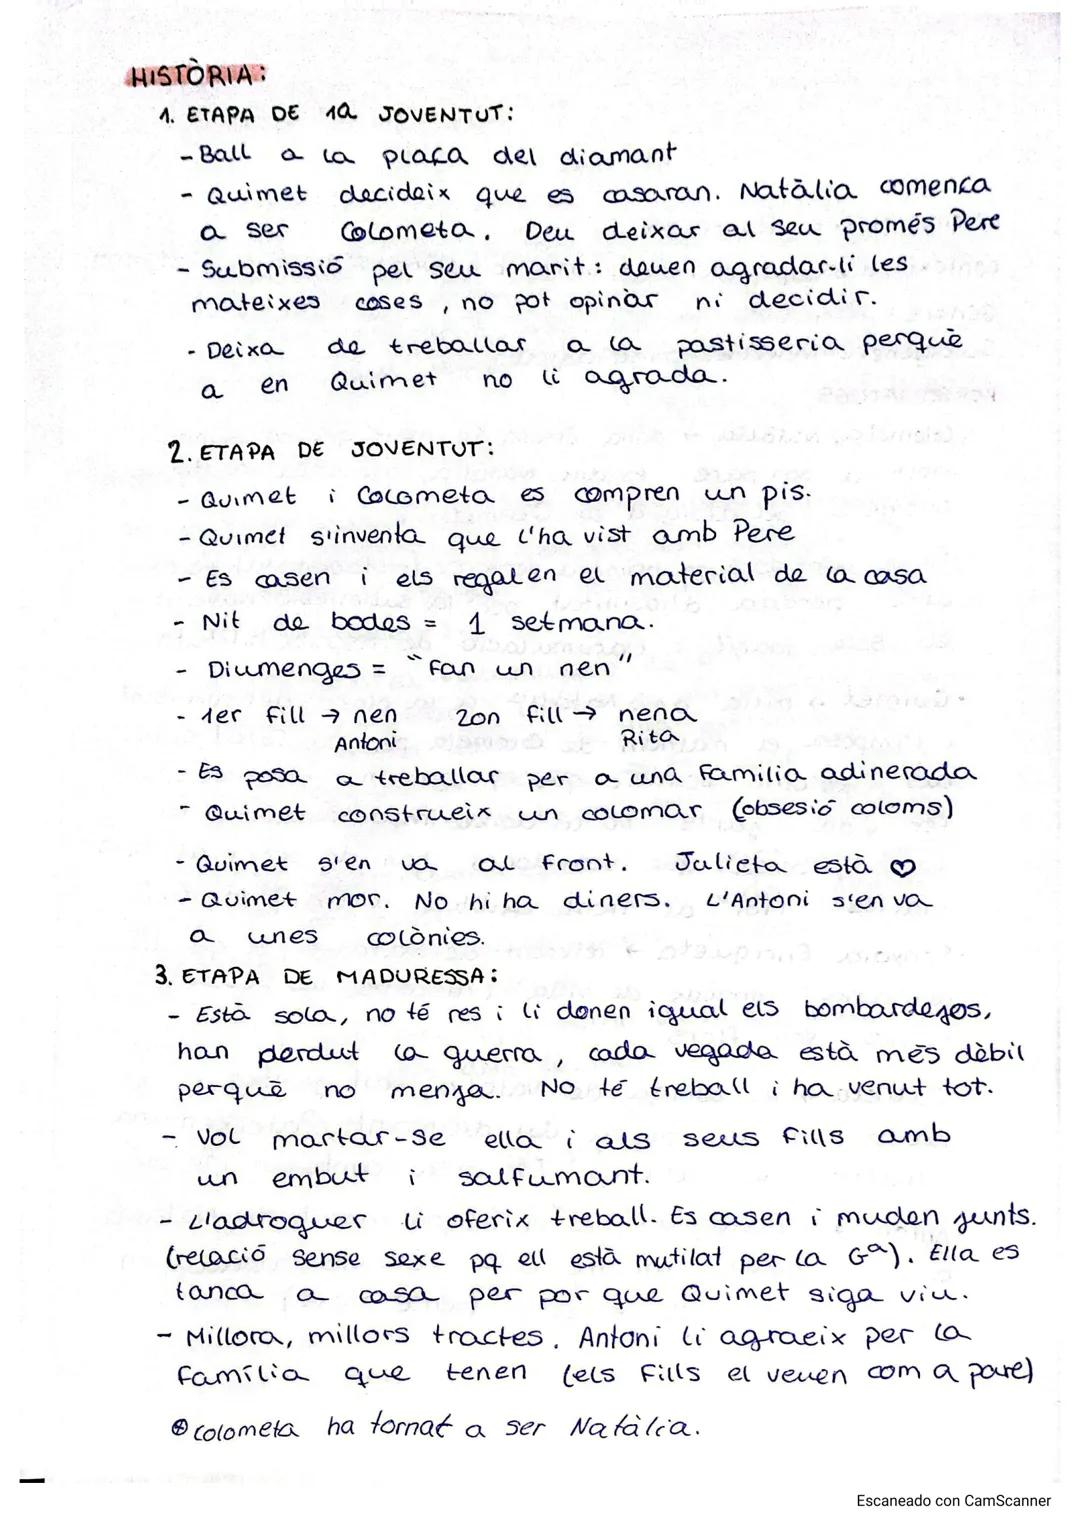 HISTÒRIA:
1. ETAPA DE 1a JOVENTUT:
- Ball a la plaça del diamant
- Quimet decideix que es casaran. Natàlia comença
a ser Colometa. Deu deixar al seu promés Pere
- Submissió pel seu marit: deuen agradar-li les
mateixes coses, no pot opinar ni decidir.
- Deixa de treballar a la pastisseria perquè
a en Quimet no li agrada.
2. ETAPA DE JOVENTUT:
- Quimet i Colometa es compren un pis.
- Quimet s'inventa que l'ha vist amb Pere
- Es casen i els regalen el material de la casa
- Nit de bodes = 1 setmana.
- Diumenges = "Fan un nen"
- 1er fill → nen 2on fill → nena
Antoni Rita
- Es posa a treballar per a una Familia adinerada
- Quimet construeix un colomar (obsesió coloms)
- Quimet s'en va al front. Julieta està ♡
- Quimet mor. No hi ha diners. L'Antoni s'en va
a unes colònies.
3. ETAPA DE MADURESSA:
- Està sola, no té res i li donen igual els bombardejos,
han perdut la guerra, cada vegada està més dèbil
perquè no menja. No té treball i ha venut tot.
- Vol martar-se ella i als seus fills amb
un embut i salfumant.
- L'adroguer li oferix treball. Es casen i muden junts.
(relació sense sexe pq ell està mutilat per la Gª). Ella es
tanca a casa per por que Quimet siga viu.
- Millora, millors tractes. Antoni li agraeix per la
família que tenen (els fills el veuen com a pare)
⊛ Colometa ha tornat a ser Natàlia.
Escaneado con CamScanner